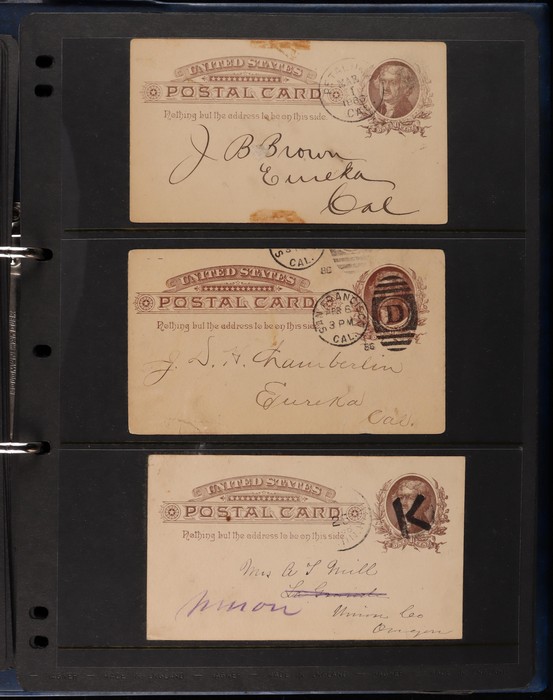 UNITED STATES
POSTAL CARD
Nothing but the address to be on this side.
CAL
J B Brown
Eureka
Cal
CAL.
UNITED STATES
POSTAL CARD
Nothing but the address to be on this side
SAN FRANCISCO
6
3 PM
CAL.
86
D
J. D. H. Chamberlin
Eureka
Cal.
UNITED STATES
POSTAL CARD.
Nothing but the address to be on this side.
Mrs A T Mill
Union Co
Oregon